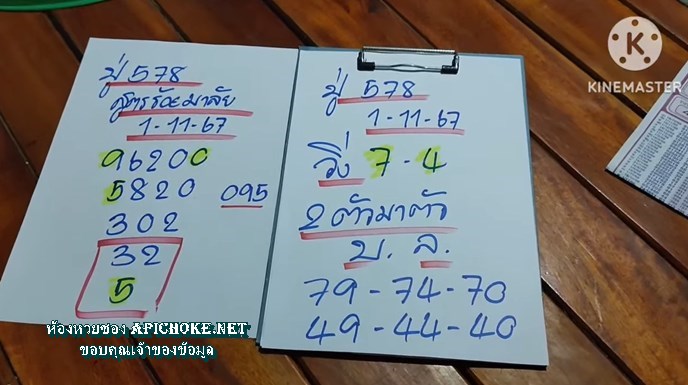 ปู่ 578
สูตรร้อยมาลัย
1-11-67
96200
5820 095
302
32
5
ปู่ 578
1-11-67
วิ่ง 7-4
2 ตัวมาตัว
บ. ล.
79-74-70
49-44-40
K
KINEMASTER
ห้องหวยซอง APICHOKE.NET
ขอบคุณเจ้าของข้อมูล